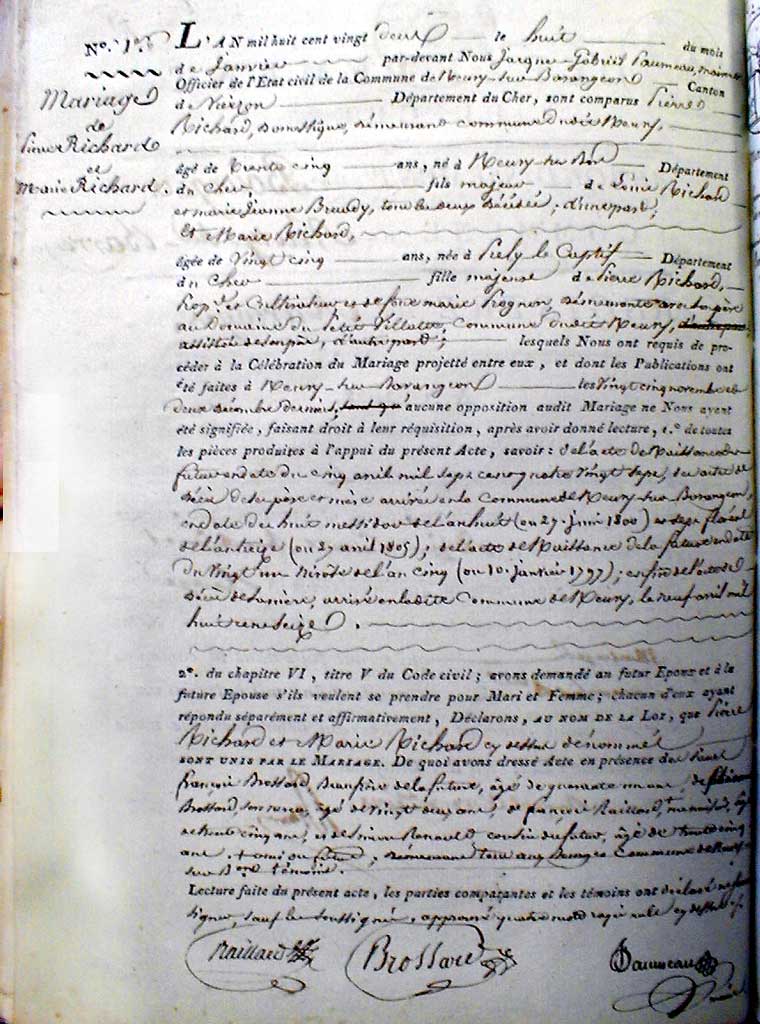 N.º 1.er
Mariage
de
Pierre Richard
et
Marie Richard.
L'AN mil huit cent vingt deux le huit du mois
de Janvier par-devant Nous Jacque Gabriel Daumeau, maire
Officier de l'Etat civil de la Commune de Neuvy-sur-Barangeon Canton
de Vierzon Département du Cher, sont comparus Pierre
Richard, Domestique, demeurant commune dudit Neuvy,
âgé de trente cinq ans, né à Neuvy-sur-Bon Département
du Cher, fils majeur de Louis Richard
et marie Jeanne Breudy, tous les deux décédés; d'une part;
Et Marie Richard,
âgée de Vingt cinq ans, née à Presly le Captif Département
du Cher fille majeure de Pierre Richard,
et Cultivateur et de feue marie demeurante avec son père
au Domaine du Petit Villatte, Commune dudit Neuvy,
assistée de son père, d'autre part; lesquels Nous ont requis de pro-
céder à la Célébration du Mariage projetté entre eux, et dont les Publications ont
été faites à Neuvy-sur-Barangeon les Vingt cinq novembre et
deux décembre derniers, aucune opposition audit Mariage ne Nous ayant
été signifiée, faisant droit à leur réquisition, après avoir donné lecture, 1.º de toutes
les pièces produites à l'appui du présent Acte, savoir: de l'acte de Naissance du
futur en date du cinq avril mil sept cent quatre vingt sept, des actes de
décès de ses père et mère arrivés en la Commune de Neuvy-sur-Barangeon,
en date du huit messidor de l'an huit (ou 27 juin 1800) et sept floréal
de l'an treize (ou 27 avril 1805); de l'acte de Naissance de la future en date
du Vingt un Nivôse de l'an cinq (ou 10 janvier 1797); enfin de l'acte de
décès de sa mère, arrivé en ladite Commune de Neuvy, le neuf avril mil
huit cent seize.
2º. du chapitre VI, titre V du Code civil; avons demandé au futur Epoux et à la
future Epouse s'ils veulent se prendre pour Mari et Femme; chacun d'eux ayant
répondu séparément et affirmativement, Déclarons, AU NOM DE LA LOI, que Pierre
Richard et Marie Richard cy dessus dénommés
SONT UNIS PAR LE MARIAGE. De quoi avons dressé Acte en présence de
françois Brossard, Beaufrère de la future, âgé de quarante un ans, de
Brossard, son neveu, âgé de vingt deux ans, de françois Raillard,
de trente cinq ans, et de Renault cousin du futur, âgé de trente cinq
ans, demeurant tous aux Bourges Commune de Neuvy
sur Bon témoins.
Lecture faite du présent acte, les parties comparantes et les témoins ont déclaré ne savoir
signer, sauf les soussignés, approuvé quatre mots rayés nuls cy dessus.
Raillard
Brossard
Daumeau